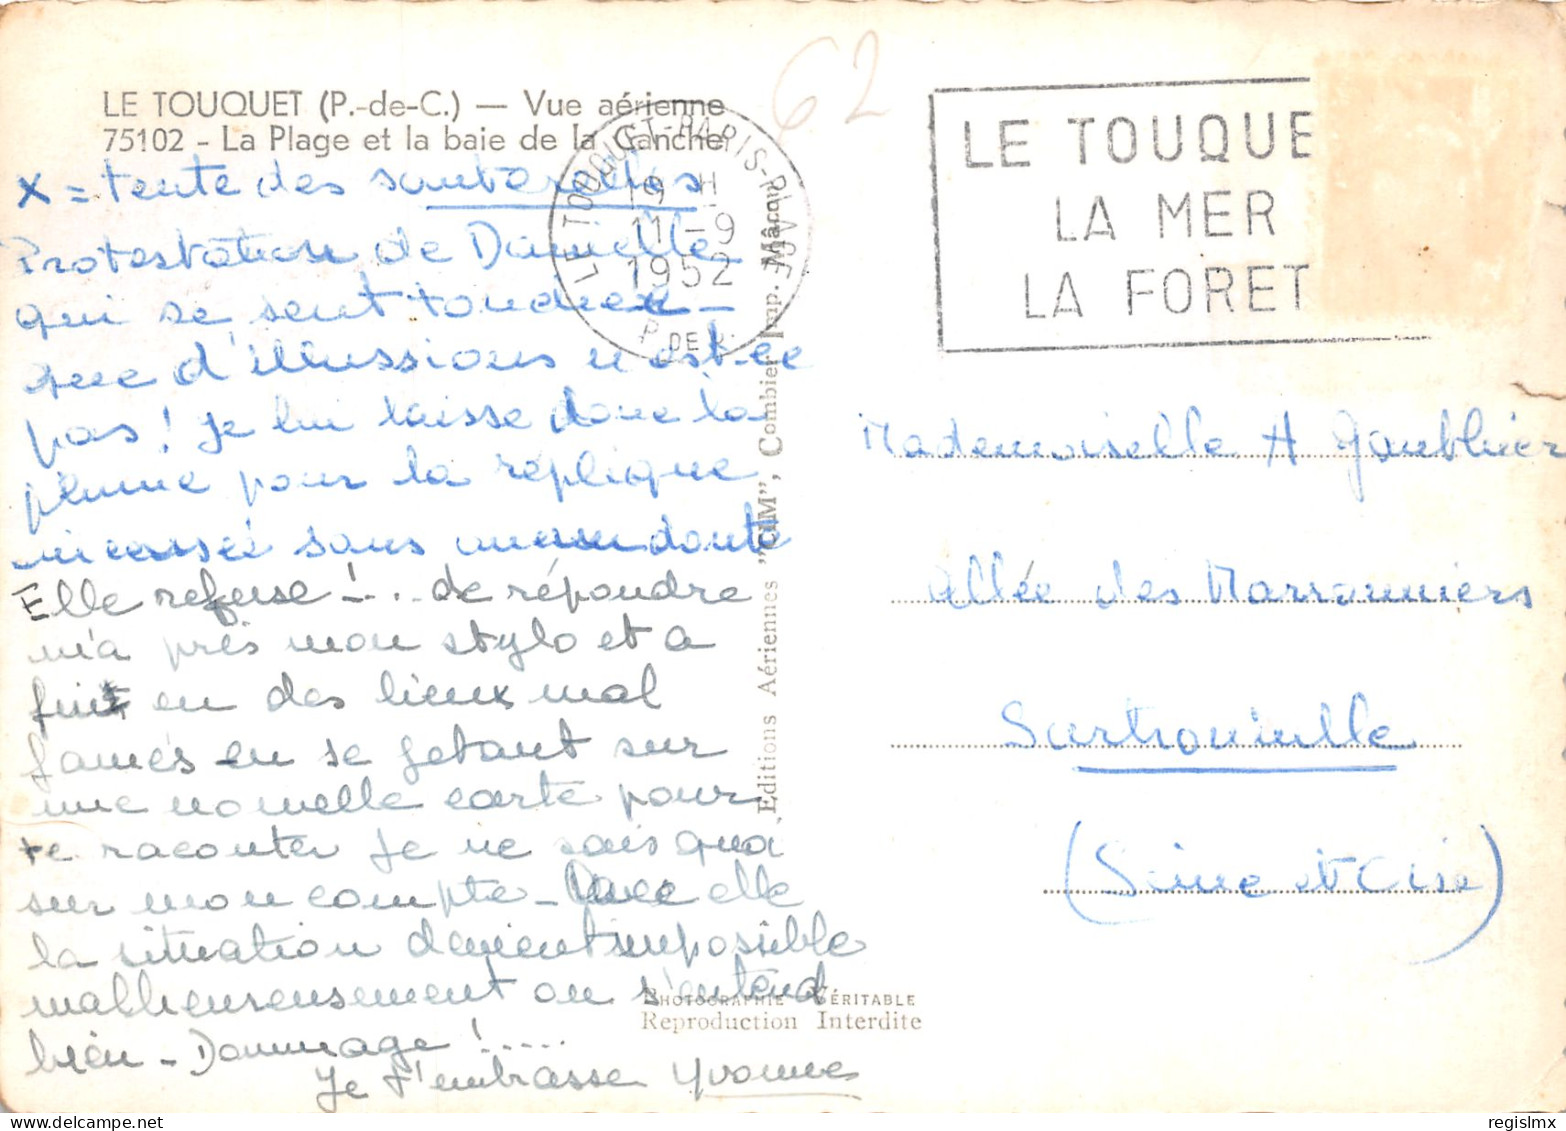 62
LE TOUQUET (P.-de-C.) — Vue aérienne
75102 - La Plage et la baie de la Canche
x = tente des santerelles
Protestation de Danielle
qui se sent toudnex -
que d'illussions n'est-ce
pas ! je lui laisse donc la
plume pour la réplique
incensée sans aucun doute
Elle refuse !... de répondre
m'a près mon stylo et a
fuit en des lieux mal
famés en se jetant sur
une nouvelle carte pour
te raconter je ne sais quoi
sur mon compte - Avec elle
la situation devient impossible
malheureusement on s'entend
bien - Dommage !.....
Je t'embrasse Yvonne
LE TOUQUET-PARIS-PLAGE
19 H
11-9
1952
P. DE C.
LE TOUQUE
LA MER
LA FORET
Editions Aériennes "CIM", Combier Imp. Mâcon
Mademoiselle A Gaubhier
Allée des Marronniers
Sartrouville
(Seine et Oise)
PHOTOGRAPHIE VÉRITABLE
Reproduction Interdite
delcampe.net
regislmx